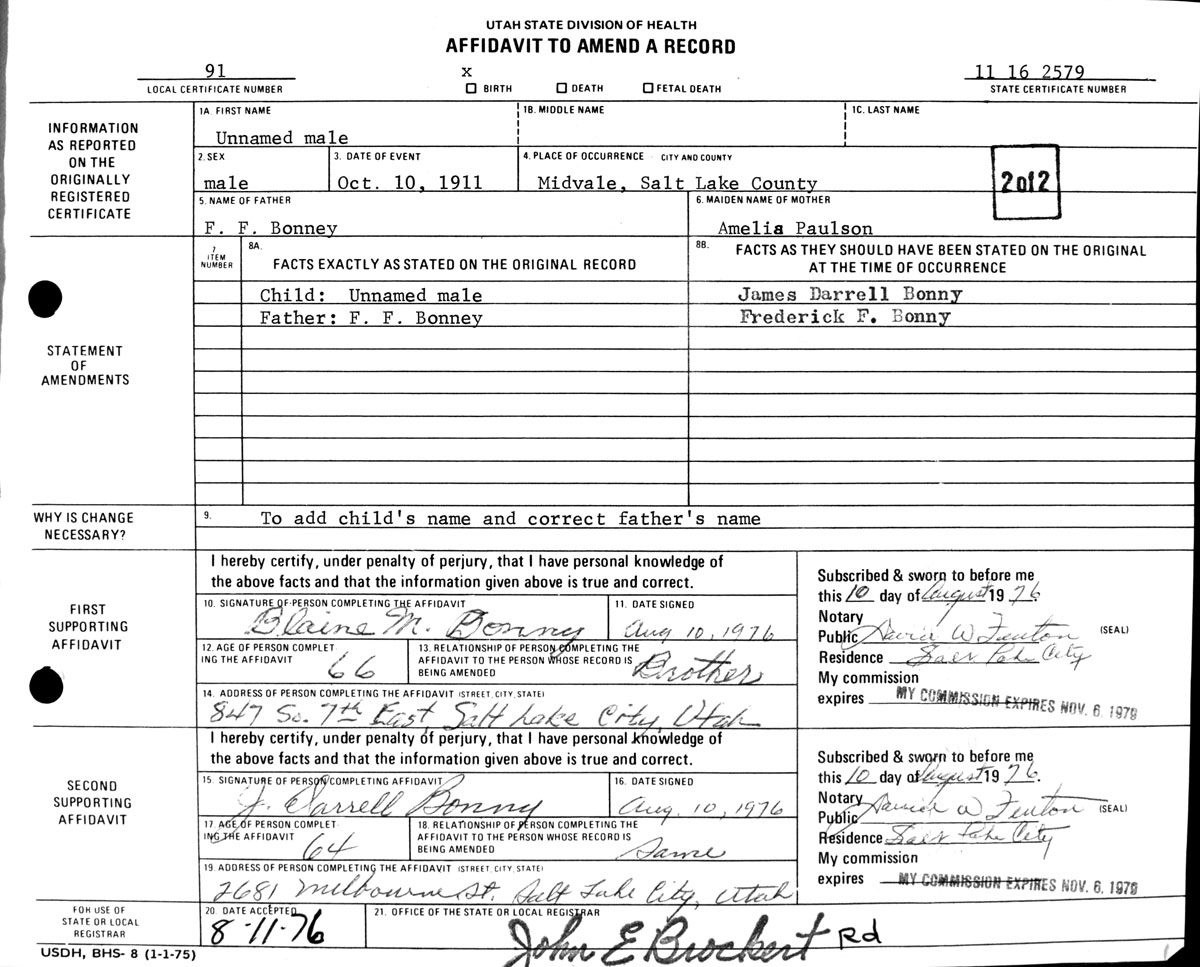 UTAH STATE DIVISION OF HEALTH
AFFIDAVIT TO AMEND A RECORD
91 x 11 16 2579
LOCAL CERTIFICATE NUMBER ☐ BIRTH ☐ DEATH ☐ FETAL DEATH STATE CERTIFICATE NUMBER
INFORMATION
AS REPORTED
ON THE
ORIGINALLY
REGISTERED
CERTIFICATE
1A. FIRST NAME 1B. MIDDLE NAME 1C. LAST NAME
Unnamed male
2. SEX 3. DATE OF EVENT 4. PLACE OF OCCURRENCE CITY AND COUNTY
male Oct. 10, 1911 Midvale, Salt Lake County
2of2
5. NAME OF FATHER 6. MAIDEN NAME OF MOTHER
F. F. Bonney Amelia Paulson
STATEMENT
OF
AMENDMENTS
7
ITEM
NUMBER
8A.
FACTS EXACTLY AS STATED ON THE ORIGINAL RECORD
8B. FACTS AS THEY SHOULD HAVE BEEN STATED ON THE ORIGINAL
AT THE TIME OF OCCURRENCE
Child: Unnamed male James Darrell Bonny
Father: F. F. Bonney Frederick F. Bonny
WHY IS CHANGE
NECESSARY?
9. To add child's name and correct father's name
FIRST
SUPPORTING
AFFIDAVIT
I hereby certify, under penalty of perjury, that I have personal knowledge of
the above facts and that the information given above is true and correct.
10. SIGNATURE OF PERSON COMPLETING THE AFFIDAVIT 11. DATE SIGNED
Blaine M. Bonny Aug 10, 1976
12. AGE OF PERSON COMPLET
ING THE AFFIDAVIT 66
13. RELATIONSHIP OF PERSON COMPLETING THE
AFFIDAVIT TO THE PERSON WHOSE RECORD IS
BEING AMENDED Brother
14. ADDRESS OF PERSON COMPLETING THE AFFIDAVIT (STREET, CITY, STATE)
847 So. 7th East, Salt Lake City, Utah
Subscribed & sworn to before me
this 10 day of August 19 76
Notary
Public David W Fenton (SEAL)
Residence Salt Lake City
My commission
expires MY COMMISSION EXPIRES NOV. 6, 1979
SECOND
SUPPORTING
AFFIDAVIT
I hereby certify, under penalty of perjury, that I have personal knowledge of
the above facts and that the information given above is true and correct.
15. SIGNATURE OF PERSON COMPLETING AFFIDAVIT 16. DATE SIGNED
J. Darrell Bonny Aug. 10, 1976
17. AGE OF PERSON COMPLET
ING THE AFFIDAVIT 64
18. RELATIONSHIP OF PERSON COMPLETING THE
AFFIDAVIT TO THE PERSON WHOSE RECORD IS
BEING AMENDED Same
19. ADDRESS OF PERSON COMPLETING THE AFFIDAVIT (STREET, CITY, STATE)
2681 Melbourne St. Salt Lake City, Utah
Subscribed & sworn to before me
this 10 day of August 19 76.
Notary
Public David W Fenton (SEAL)
Residence Salt Lake City
My commission
expires MY COMMISSION EXPIRES NOV. 6, 1979
FOR USE OF
STATE OR LOCAL
REGISTRAR
20. DATE ACCEPTED 21. OFFICE OF THE STATE OR LOCAL REGISTRAR
8-11-76 John E Brockert Rd
USDH, BHS- 8 (1-1-75)